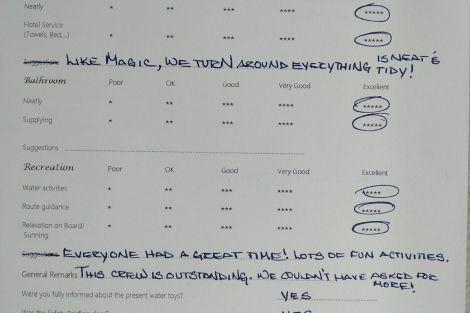 Neatly * ** *** **** *****
Hotel Service
(Towels, Bed,...) * ** *** **** *****
Suggestions LIKE MAGIC, WE TURN AROUND EVERYTHING IS NEAT &
TIDY!
Bathroom Poor OK Good Very Good Excellent
Neatly * ** *** **** *****
Supplying * ** *** **** *****
Suggestions
Recreation Poor OK Good Very Good Excellent
Water activities * ** *** **** *****
Route guidance * ** *** **** *****
Relaxation on Board/
Sunning * ** *** **** *****
Suggestions EVERYONE HAD A GREAT TIME! LOTS OF FUN ACTIVITIES.
General Remarks THIS CREW IS OUTSTANDING. WE COULDN'T HAVE ASKED FOR
MORE!
Were you fully informed about the present water toys? YES